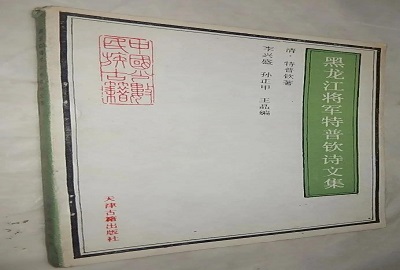 黑龙江将军特普钦诗文集
清·特普钦著
李兴盛 孙正甲 王晶编
中國少數
民族古籍
天津古籍出版社